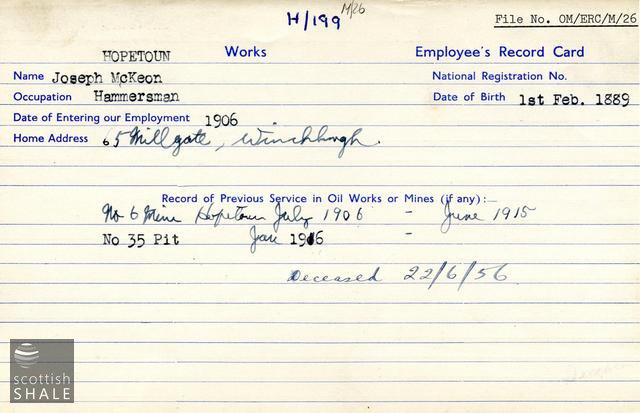 H/199 M/26
File No. OM/ERC/M/26
HOPETOUN Works Employee's Record Card
Name Joseph McKeon National Registration No.
Occupation Hammersman Date of Birth 1st Feb. 1889
Date of Entering our Employment 1906
Home Address 65 Millgate, Winchburgh.
Record of Previous Service in Oil Works or Mines (if any):—
No 6 Mine Hopetoun July 1906 - June 1915
No 35 Pit Jan 1916 -
Deceased 22/6/56
scottish
SHALE